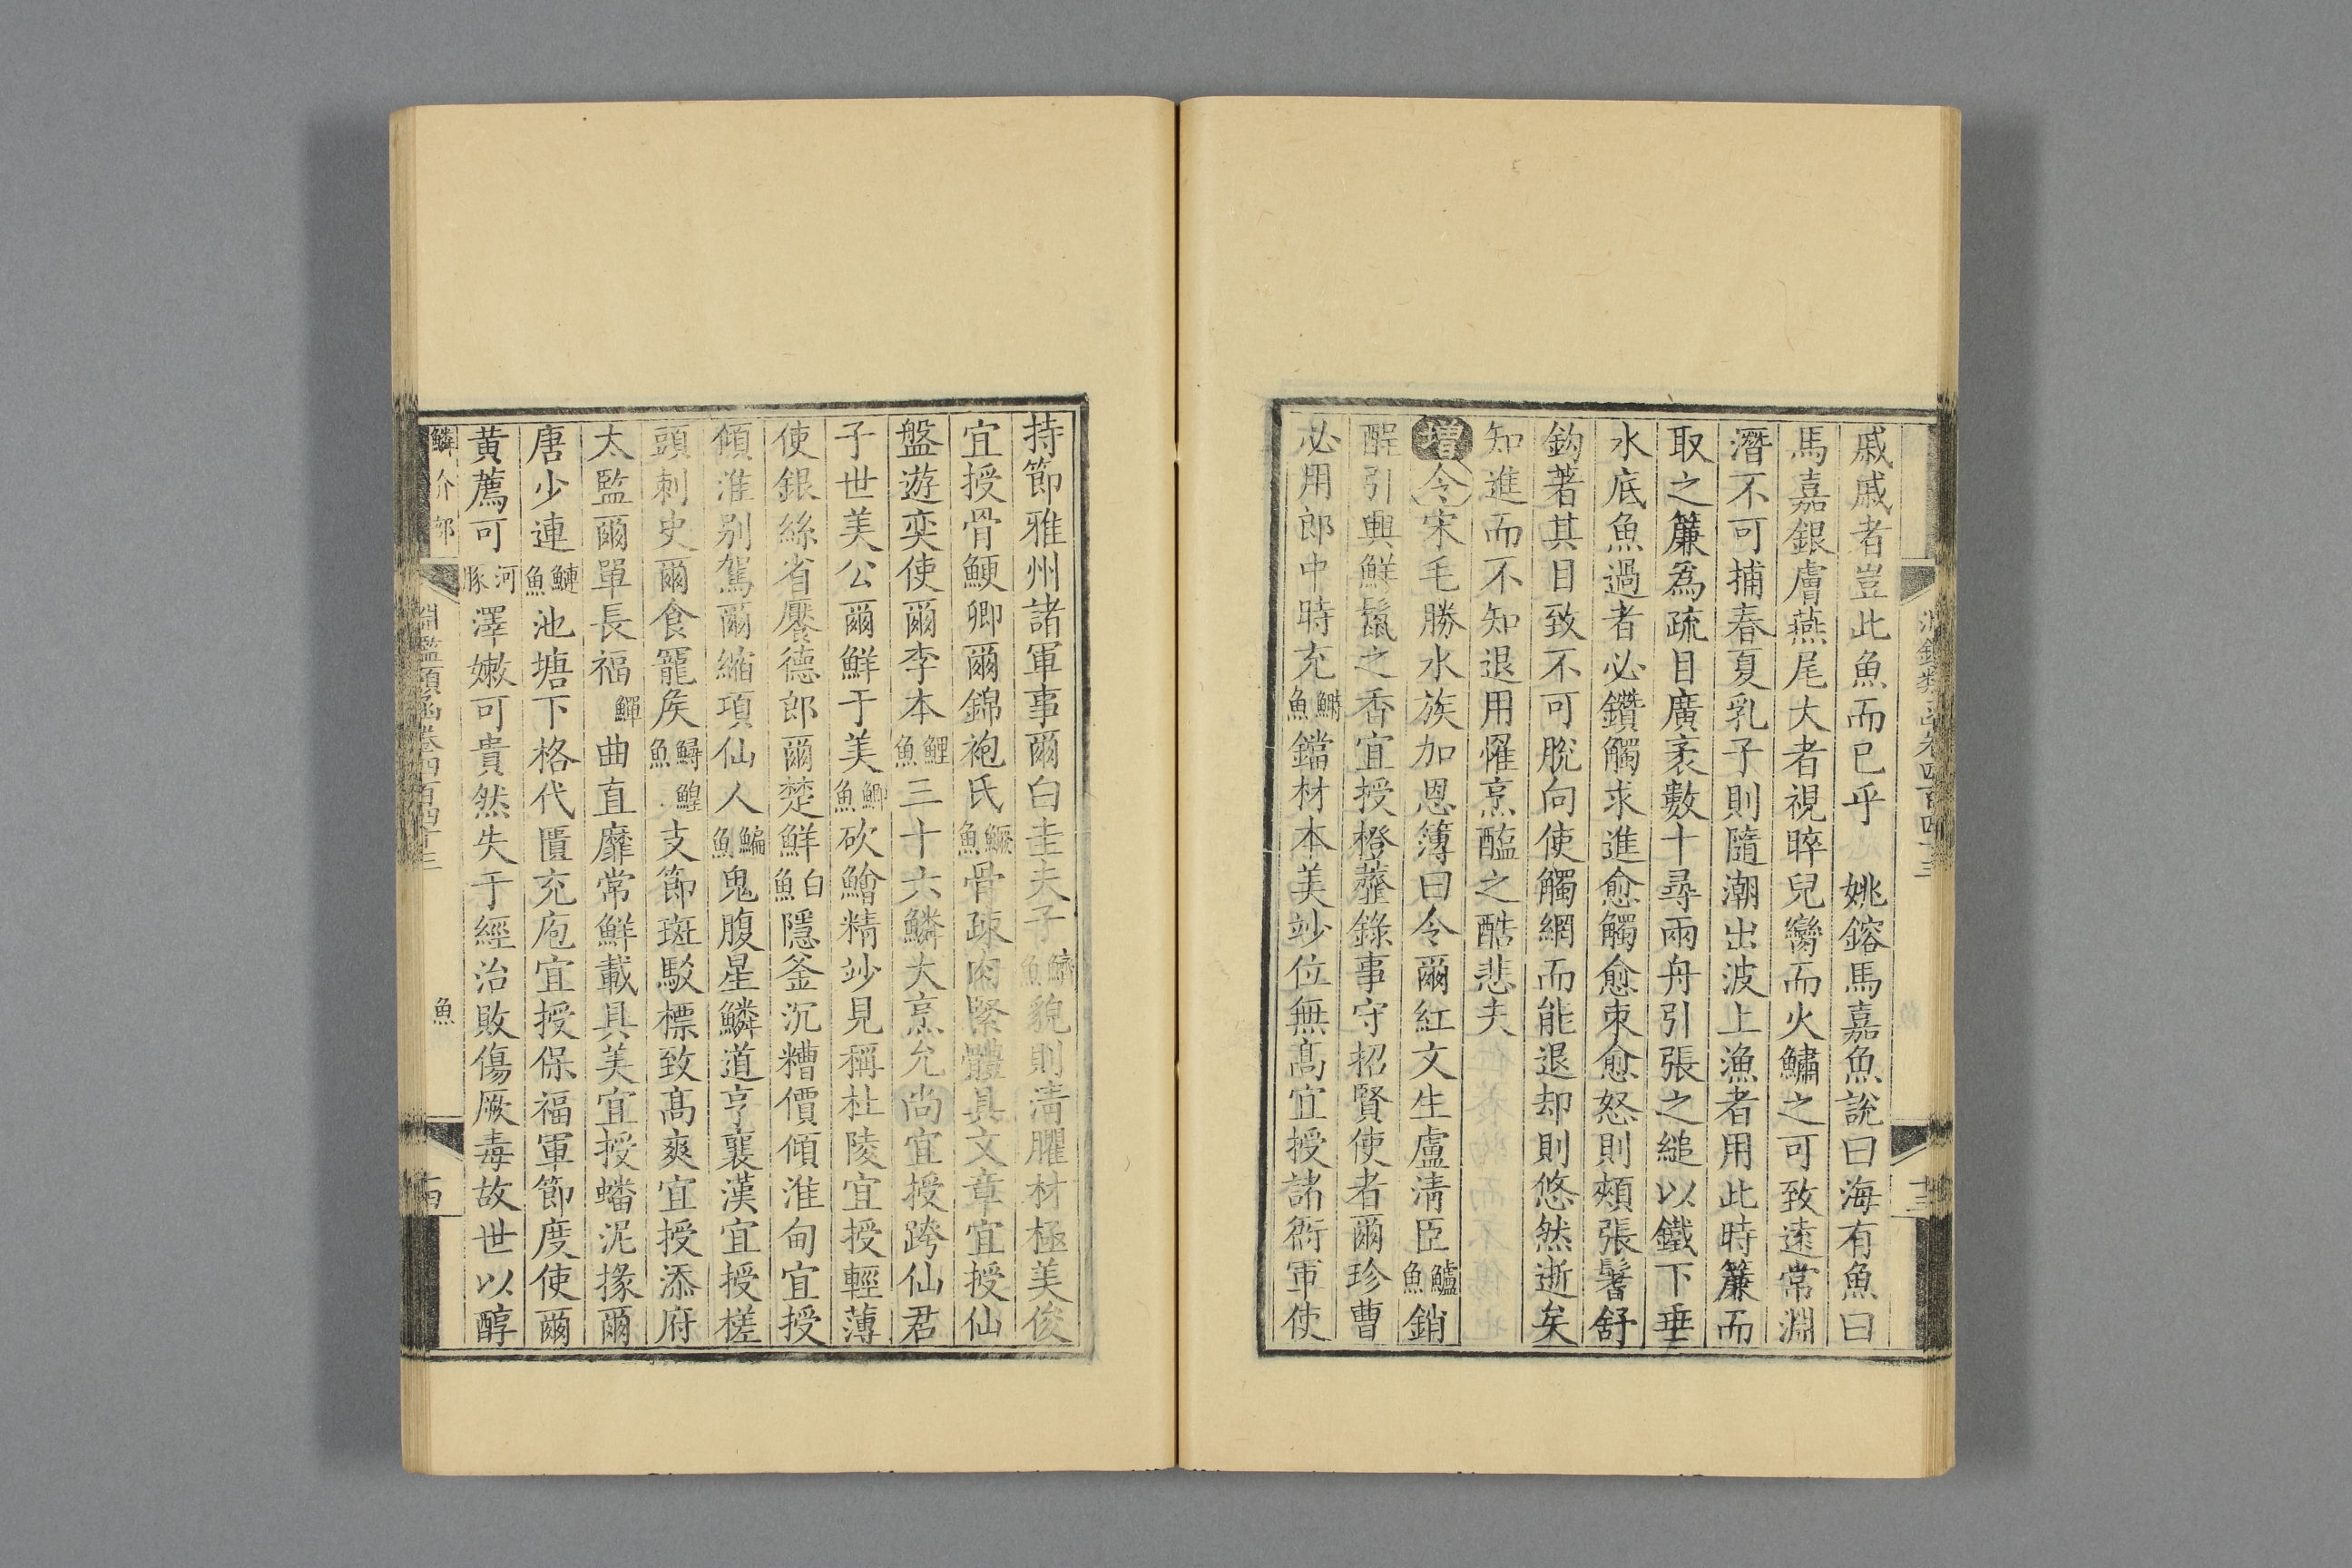 戚戚者豈此魚而已乎　姚鎔馬嘉魚說曰海有魚曰
馬嘉銀膚燕尾大者視晬兒臠而火鱐之可致遠常淵
潛不可捕春夏乳子則隨潮出波上漁者用此時簾而
取之簾爲疏目廣袤數十尋兩舟引張之縋以鐵下垂
水底魚過者必鑽觸求進愈觸愈束愈怒則頰張鬐舒
鈎著其目致不可脫向使觸網而能退却則悠然逝矣
知進而不知退用罹烹醢之酷悲夫
增令宋毛勝水族加恩簿曰令爾紅文生盧清臣鱸魚銷
酲引興鮮鬛之香宜授橙虀錄事守招賢使者爾珍曹
必用郎中時充鰣魚鐺材本美妙位無高宜授諸衙軍使
持節雅州諸軍事爾白圭夫子鱭魚貌則清臞材極美俊
宜授骨鯁卿爾錦袍氏鱖魚骨疎肉緊體具文章宜授仙
盤遊奕使爾李本鯉魚三十六鱗大烹允尚宜授跨仙君
子世美公爾鮮于美鯽魚砍鱠精妙見稱杜陵宜授輕薄
使銀絲省饜德郎爾楚鮮白魚隱釜沉糟價傾淮甸宜授
傾淮别駕爾縮項仙人鯿魚鬼腹星鱗道亨襄漢宜授槎
頭刺史爾食寵矦鱘鰉魚支節斑駁標致高爽宜授添府
太監爾單長福鱓曲直靡常鮮載具美宜授蟠泥掾爾
唐少連鰱魚池塘下格代匱充庖宜授保福軍節度使爾
黄薦可河豚澤嫩可貴然失于經治敗傷厥毒故世以醇
鱗介部
淵鑑類函卷四百四十三
魚
十四